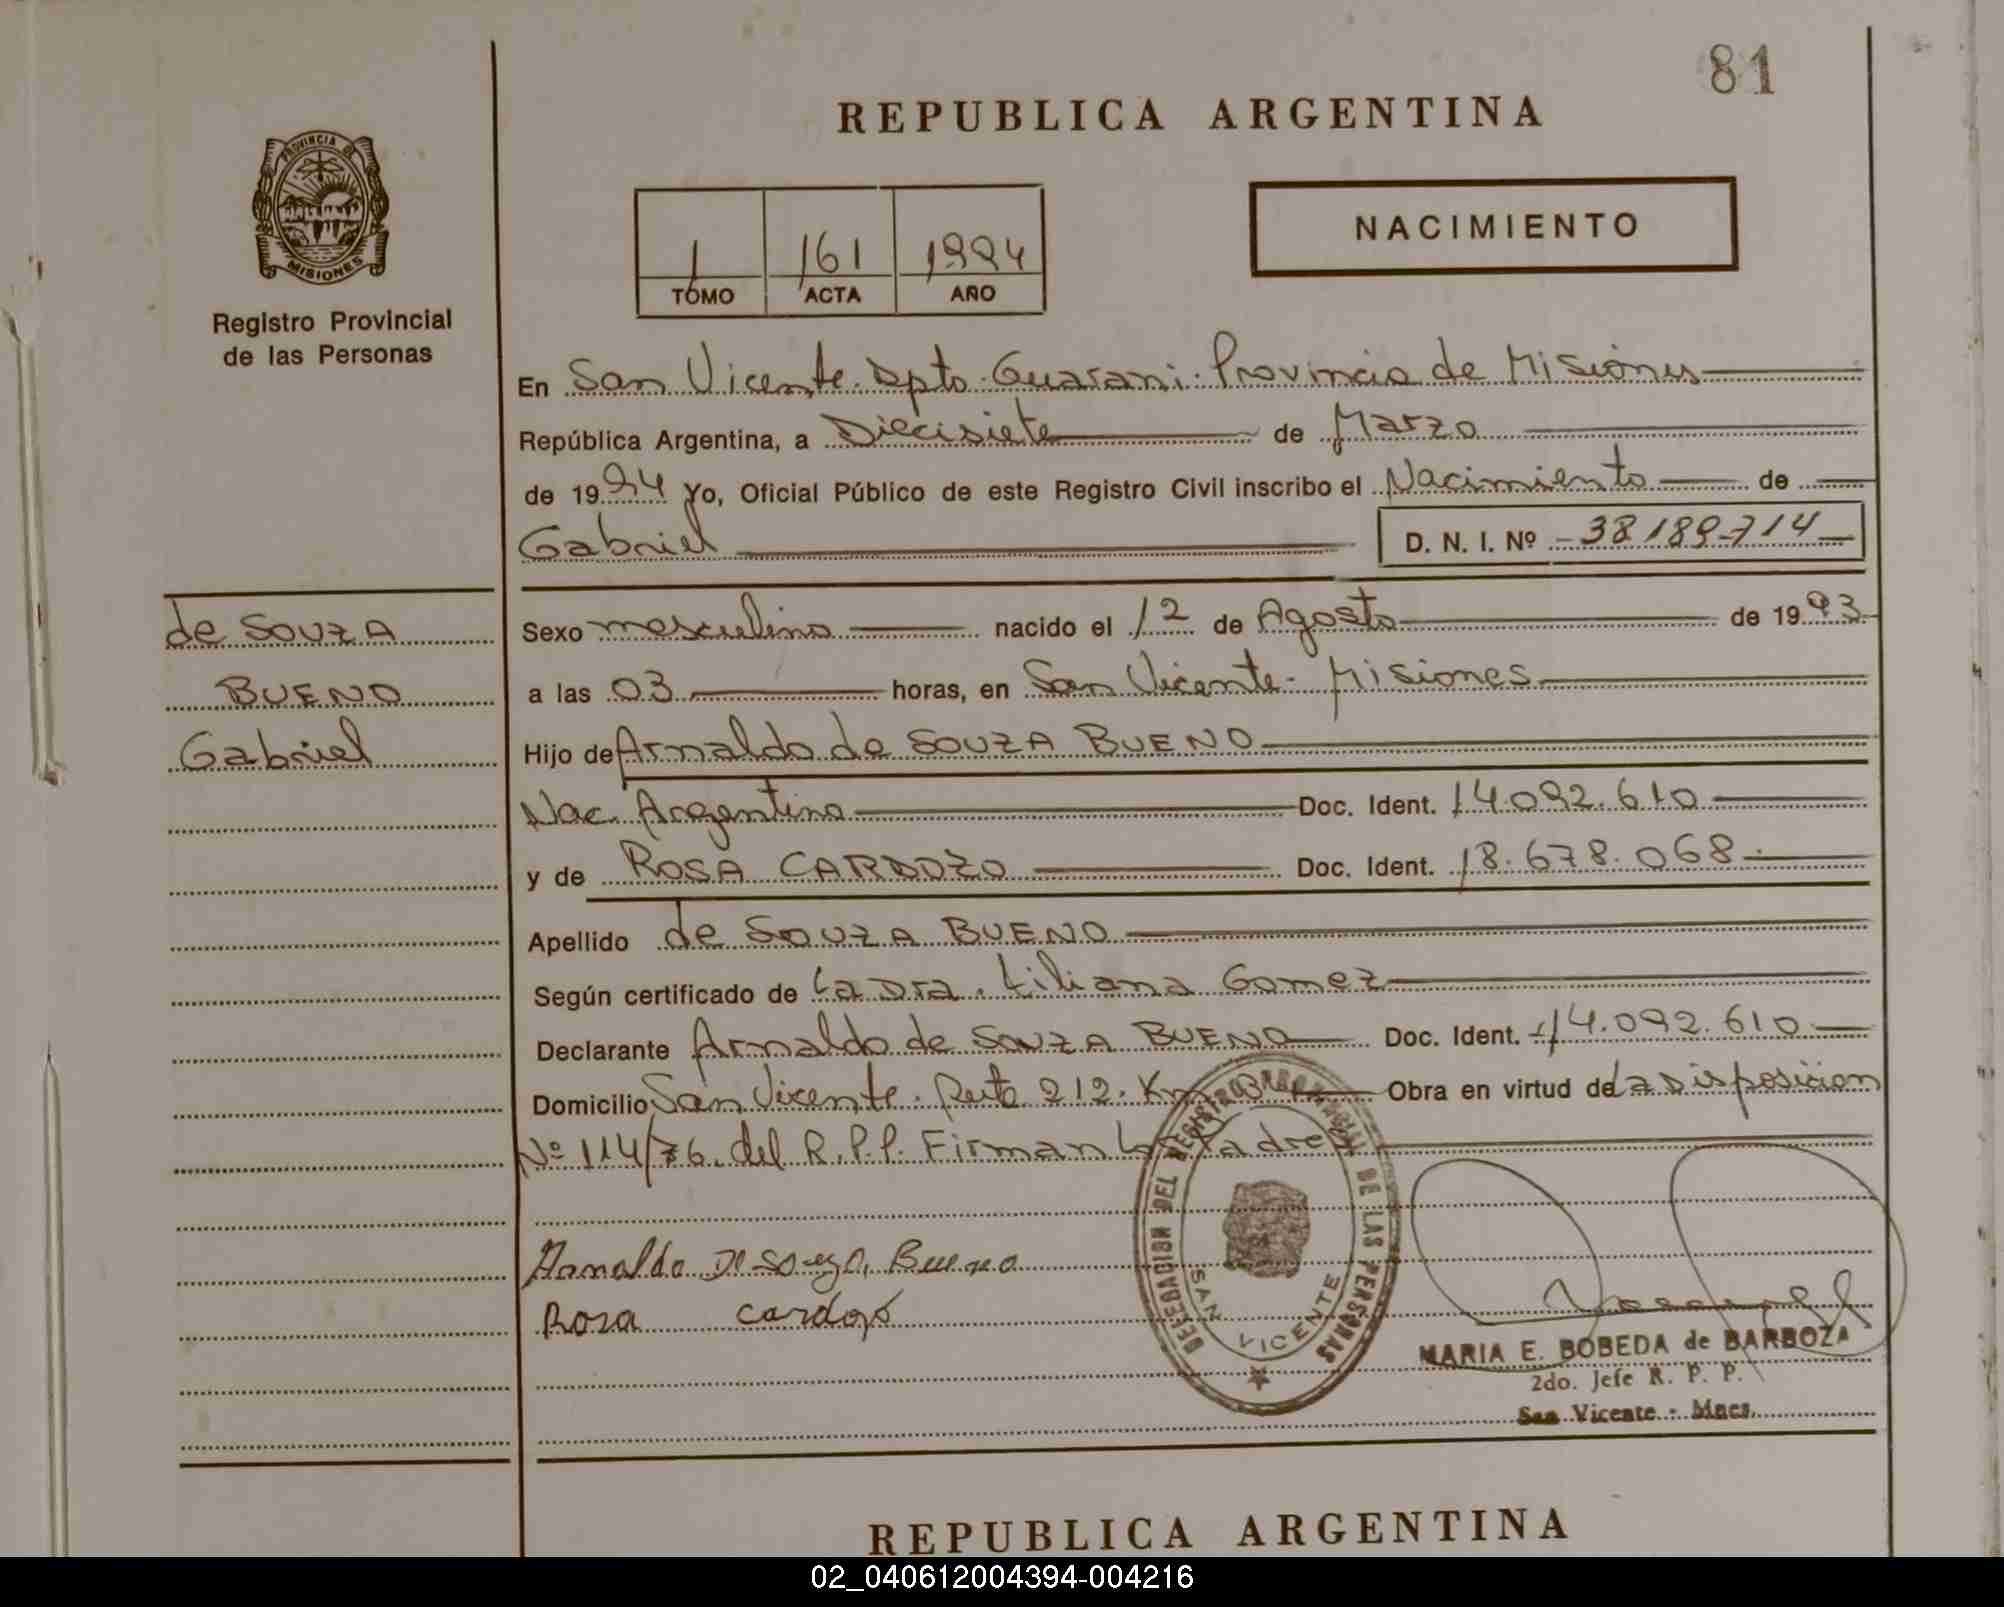 81
REPUBLICA ARGENTINA
PROVINCIA DE
MISIONES
Registro Provincial
de las Personas
1 161 1994
TOMO ACTA AÑO
NACIMIENTO
En San Vicente. Dpto. Guarani. Provincia de Misiones
República Argentina, a Diecisiete de Marzo
de 1994 Yo, Oficial Público de este Registro Civil inscribo el Nacimiento de
Gabriel D. N. I. Nº 38189714
de SOUZA
BUENO
Gabriel
Sexo masculino nacido el 12 de Agosto de 1993
a las 03 horas, en San Vicente - Misiones
Hijo de Arnaldo de SOUZA BUENO
Nac. Argentina Doc. Ident. 14.092.610
y de ROSA CARDOZO Doc. Ident. 18.678.068
Apellido de SOUZA BUENO
Según certificado de La Dra. Liliana Gomez
Declarante Arnaldo de SOUZA BUENO Doc. Ident. 14.092.610
Domicilio San Vicente. Ruta 212. Km Obra en virtud de la Disposicion
Nº 114/76. del R.P.P. Firman Padre
Arnaldo De Souza Bueno
Rosa Cardozo
DELEGACION DEL REGISTRO PROVINCIAL DE LAS PERSONAS
SAN VICENTE
MARIA E. BOBEDA de BARBOZA
2do. Jefe R. P. P.
San Vicente - Mnes.
REPUBLICA ARGENTINA
02_040612004394-004216